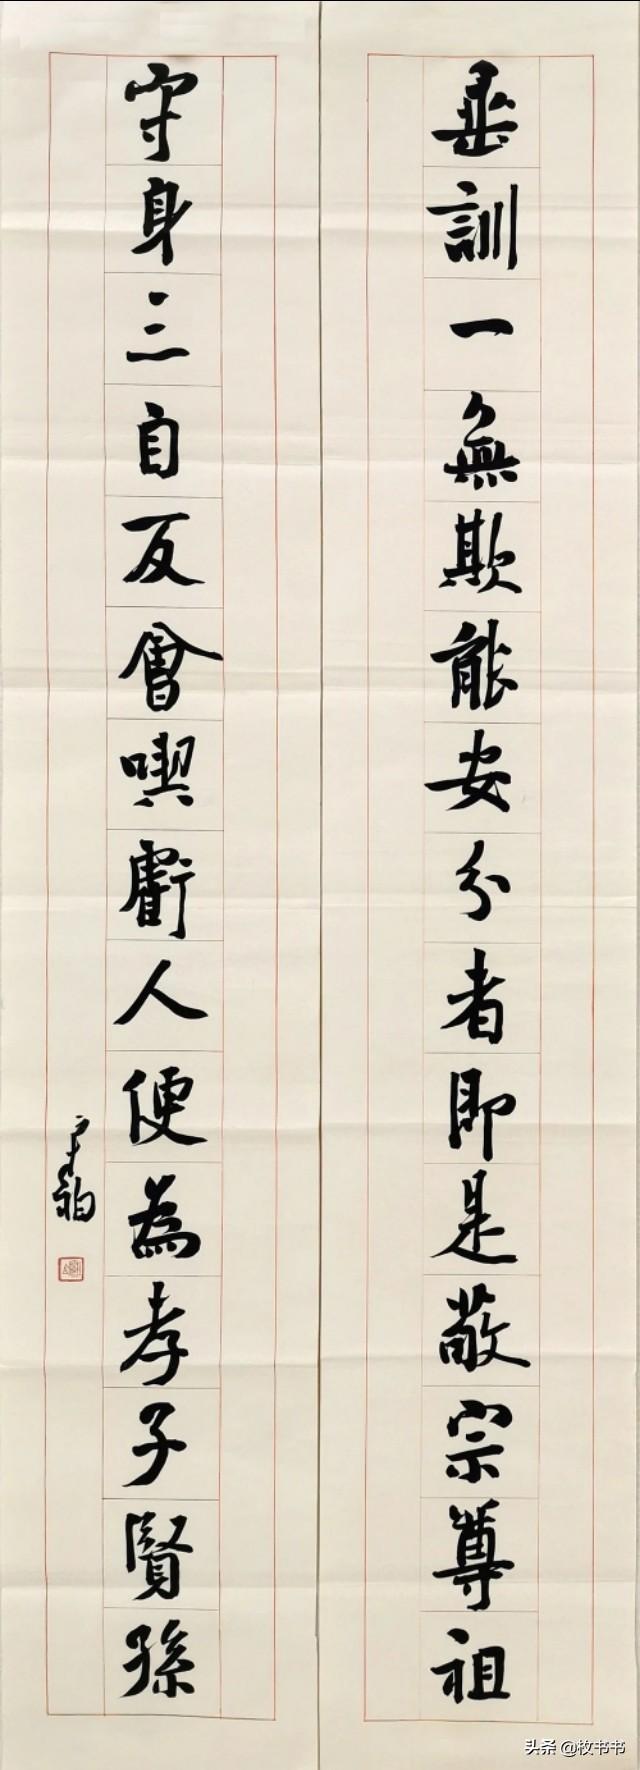 垂訓一無欺能安分者即是敬宗尊祖
守身三自反會喫虧人便為孝子賢孫
头条 @枚书书